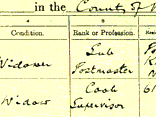 in the County of
4 5
Condition. Rank or Profession.
Widower Sub Postmaster
Widow Cook Supervisor
61